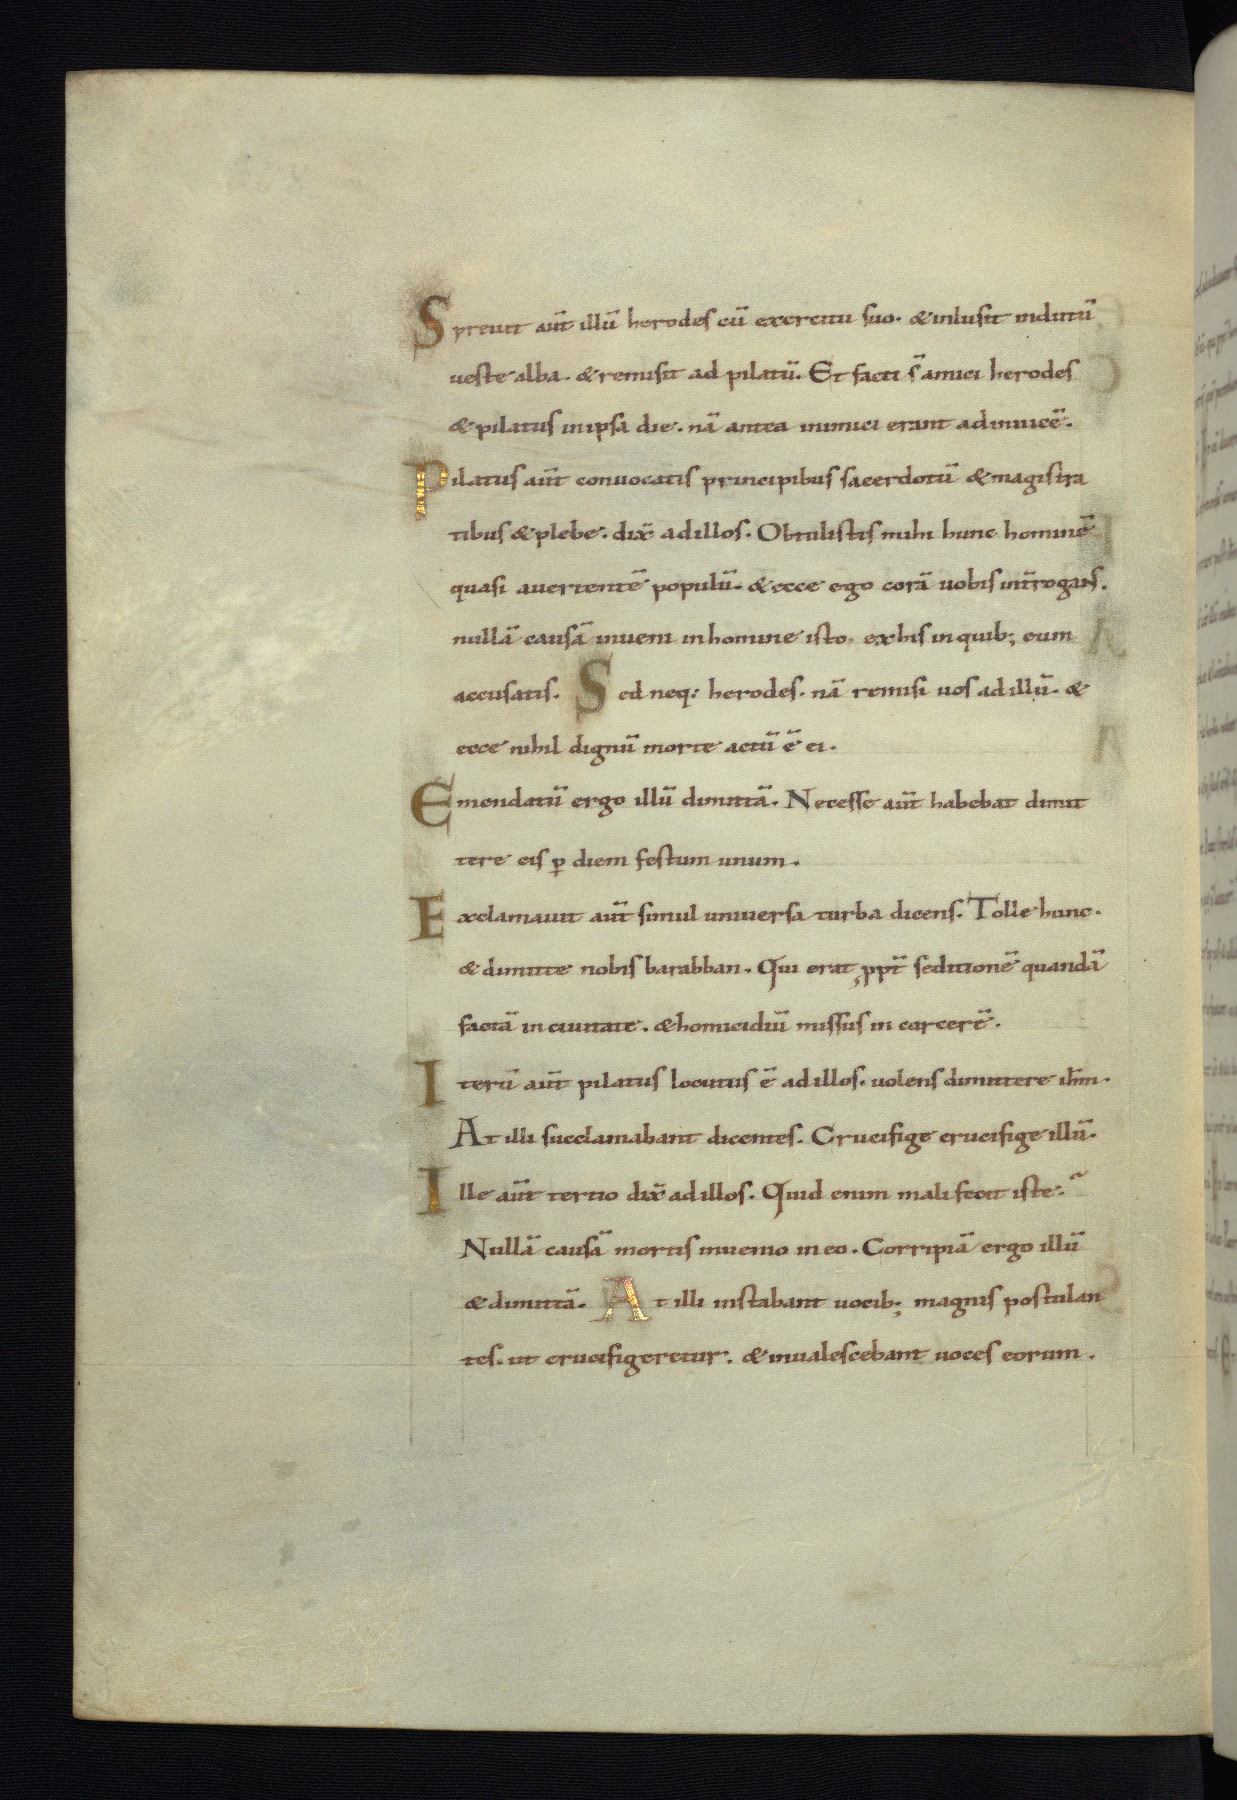 Spreuit aut̄ illū herodes cū exercitu suo. & inlusit indutū
ueste alba. & remisit ad pilatū. Et facti s̄ amici herodes
& pilatus in ipsa die. nā antea inimici erant ad inuicē.
Pilatus aut̄ conuocatis principibus sacerdotū & magistra
tibus & plebe. dix̄ ad illos. Obtulistis mihi hunc hominē
quasi auertentē populū. & ecce ego corā uobis int̄rogans.
nullā causā inueni in homine isto. ex his in quib; eum
accusatis. Sed neq; herodes. nā remisi uos ad illū. &
ecce nihil dignū morte actū ē ei.
Emendatū ergo illū dimittā. Necesse aut̄ habebat dimit
tere eis ꝑ diem festum unum.
Exclamauit aut̄ simul uniuersa turba dicens. Tolle hunc.
& dimitte nobis barabban. Qui erat ꝓpt̄ seditionē quandā
factā in ciuitate. & homicidiū missus in carcerē.
Iterū aut̄ pilatus locutus ē ad illos. uolens dimittere ih̄m.
At illi succlamabant dicentes. Crucifige crucifige illū.
Ille aut̄ tertio dix̄ ad illos. Quid enim mali fecit iste.~
Nullā causā mortis inuenio in eo. Corripiā ergo illū
& dimittā. At illi instabant uocib; magnis postulan
tes. ut crucifigeretur. & inualescebant uoces eorum.